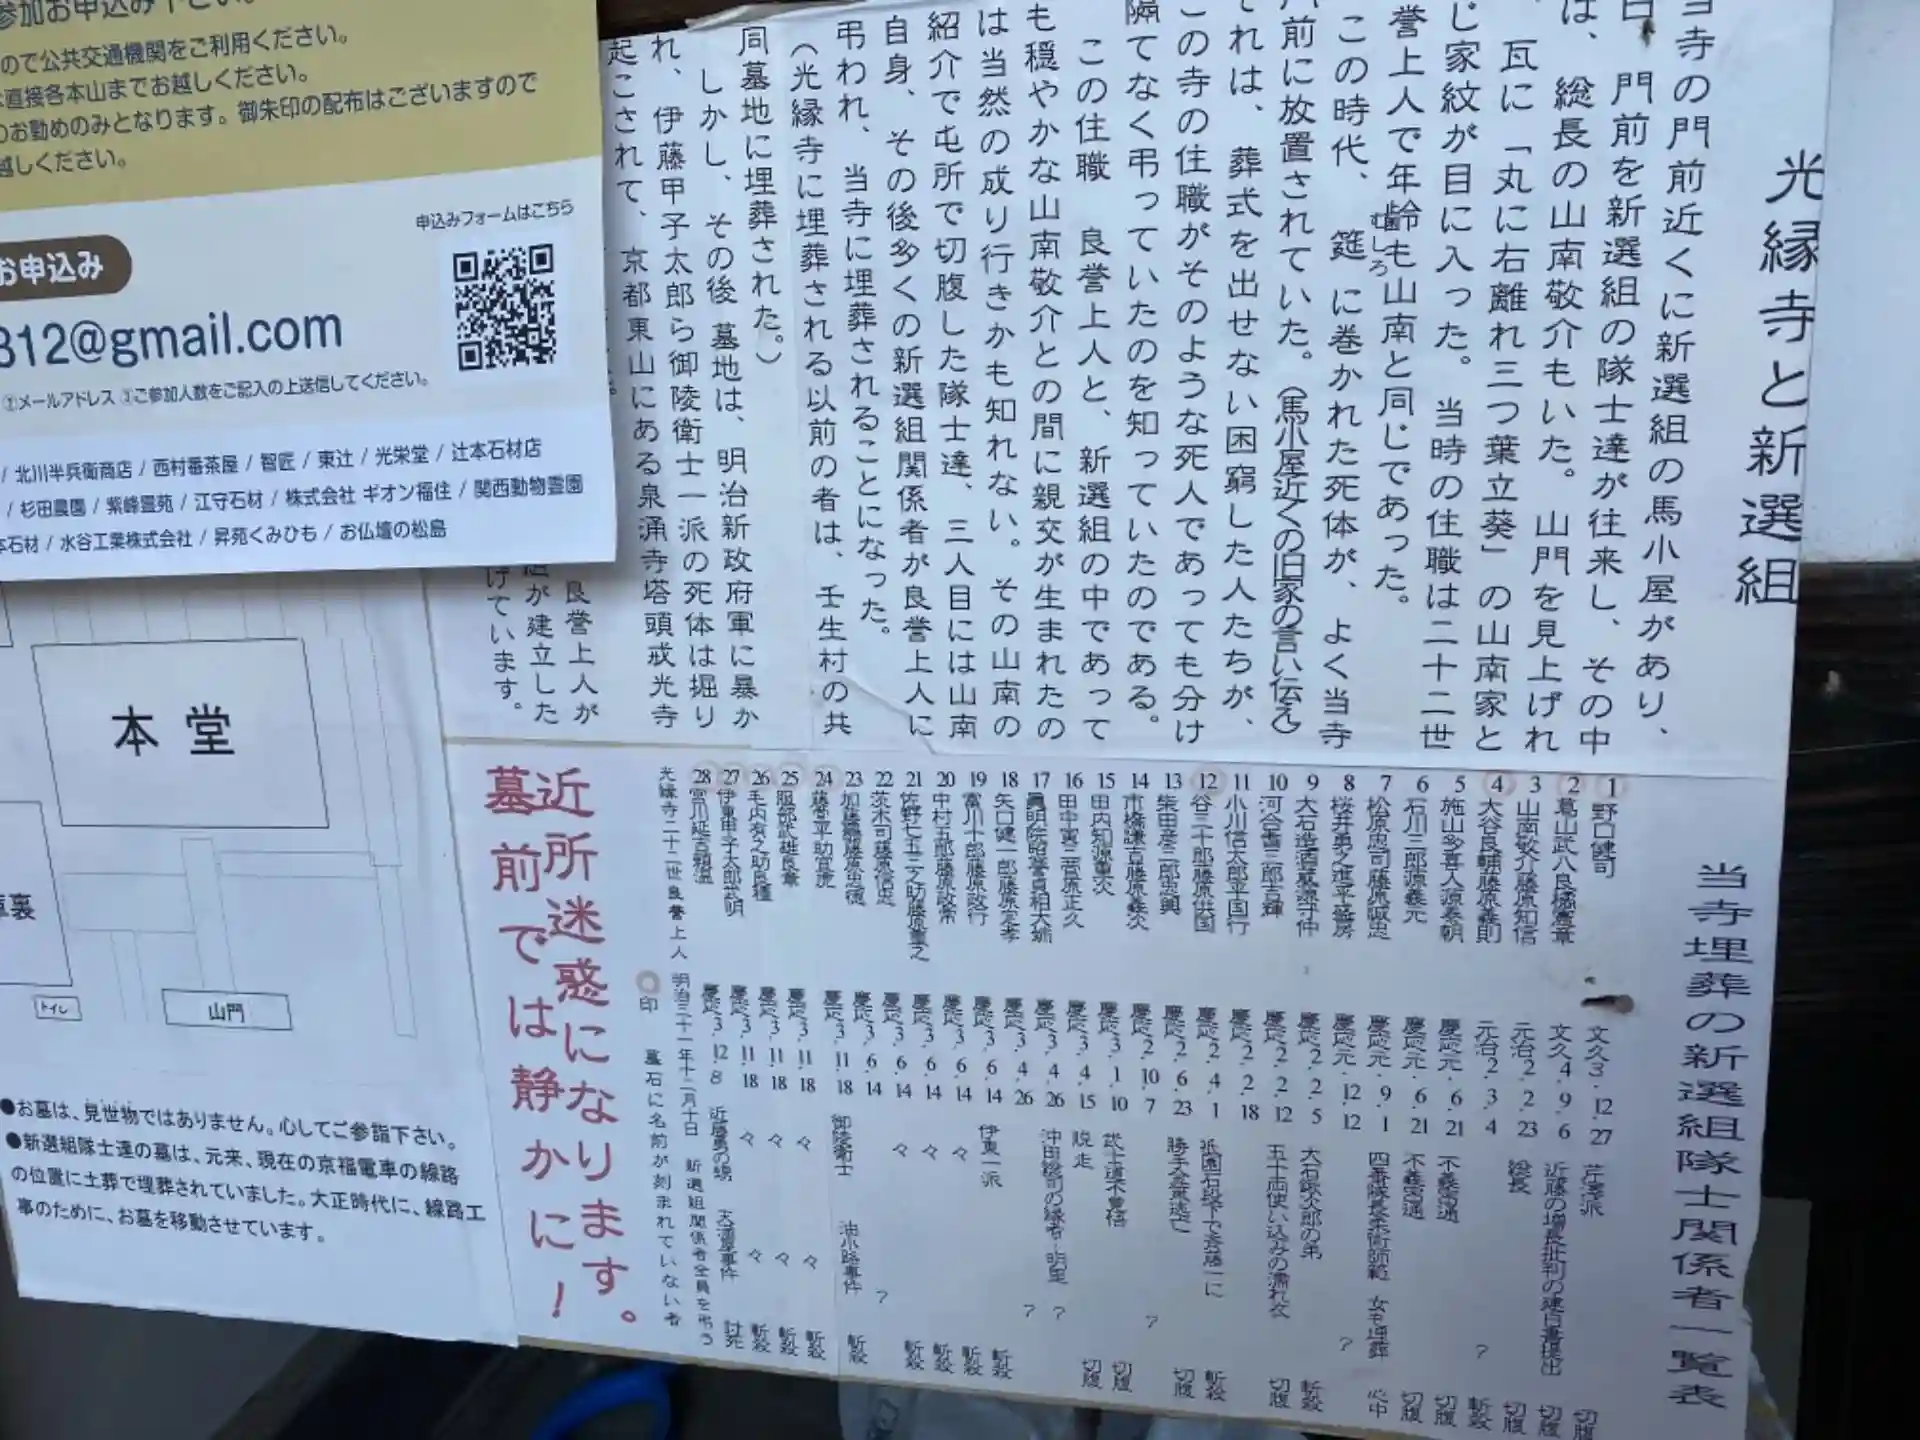 光縁寺と新選組
当寺の門前近くに新選組の馬小屋があり、
門前を新選組の隊士達が往来し、その中
は、総長の山南敬介もいた。山門を見上げれ
瓦に「丸に右離れ三つ葉立葵」の山南家と
じ家紋が目に入った。当時の住職は二十二世
誉上人で年齢も山南と同じであった。
この時代、筵に巻かれた死体が、よく当寺
むしろ
門前に放置されていた。(馬小屋近くの旧家の言い伝え)
それは、葬式を出せない困窮した人たちが、
この寺の住職がそのような死人であっても分け
隔てなく弔っていたのを知っていたのである。
この住職 良誉上人と、新選組の中であって
も穏やかな山南敬介との間に親交が生まれたの
は当然の成り行きかも知れない。その山南の
紹介で屯所で切腹した隊士達、三人目には山南
自身、その後多くの新選組関係者が良誉上人に
弔われ、当寺に埋葬されることになった。
(光縁寺に埋葬される以前の者は、壬生村の共
同墓地に埋葬された。)
しかし、その後 墓地は、明治新政府軍に暴か
れ、伊藤甲子太郎ら御陵衛士一派の死体は掘り
起こされて、京都東山にある泉涌寺塔頭戒光寺
良誉上人が
が建立した
げています。
当寺埋葬の新選組隊士関係者一覧表
1 野口健司 文久3・12・27 芹澤派 切腹
2 葛山武八良橘憲章 文久4・9・6 近藤の増長批判の建白書提出 切腹
3 山南敬介藤原知信 元治2・2・23 総長 切腹
4 大谷良輔藤原義則 元治2・3・4 ? 斬殺
5 施山多喜人源泰朝 慶応元・6・21 不義密通 切腹
6 石川三郎源義元 慶応元・6・21 不義密通 切腹
7 松原忠司藤原誠忠 慶応元・9・1 四番隊長柔術師範 女も埋葬 心中
8 桜井勇之進平盛房 慶応元・12・12 ?
9 大石造酒蔵源守仲 慶応2・2・5 大石鍬次郎の弟 斬殺
10 河合耆三郎吉輝 慶応2・2・12 五十両使い込みの濡れ衣 切腹
11 小川信太郎平国行 慶応2・2・18
12 谷三十郎藤原供国 慶応2・4・1 祇園石段下で斎藤一に 斬殺
13 柴田彦三郎忠興 慶応2・6・23 勝手金策逃亡 切腹
14 市橋謙吉藤原義次 慶応2・10・7 ?
15 田内知源重次 慶応3・1・10 武士道不覚悟 切腹
16 田中寅三菅原正久 慶応3・4・15 脱走 切腹
17 真明院昭誉貞相大姉 慶応3・4・26 沖田総司の縁者-明里 ?
18 矢口健一郎藤原定孝 慶応3・4・26 ?
19 富川十郎藤原政行 慶応3・6・14 伊東一派 斬殺
20 中村五郎藤原政常 慶応3・6・14 々 斬殺
21 佐野七五三之助藤原重之 慶応3・6・14 々 斬殺
22 茨木司藤原信忠 慶応3・6・14 々 斬殺
23 加藤羆藤原忠徳 慶応3・6・14 ?
24 藤堂平助宜虎 慶応3・11・18 御陵衛士 油小路事件 斬殺
25 服部武雄良章 慶応3・11・18 々 々 斬殺
26 毛内有之助良種 慶応3・11・18 々 々 斬殺
27 伊東甲子太郎武明 慶応3・11・18 々 々 斬殺
28 宮川延吉頼温 慶応3・12・8 近藤勇の甥 天満屋事件 討死
光縁寺二十二世良誉上人 明治三十一年十二月十日 新選組関係者全員を弔う
○印 墓石に名前が刻まれていない者
近所迷惑になります。
墓前では静かに!
参加お申込み下さい。
ので公共交通機関をご利用ください。
直接各本山までお越しください。
のお勤めのみとなります。御朱印の配布はございますので
越しください。
申込みフォームはこちら
お申込み
312@gmail.com
②メールアドレス ③ご参加人数をご記入の上送信してください。
/ 北川半兵衛商店 / 西村番茶屋 / 智匠 / 東辻 / 光栄堂 / 辻本石材店
/ 杉田農園 / 紫峰霊苑 / 江守石材 / 株式会社 ギオン福住 / 関西動物霊園
本石材 / 水谷工業株式会社 / 昇苑くみひも / お仏壇の松島
本堂
裏
トイレ
山門
●お墓は、見世物ではありません。心してご参詣下さい。
●新選組隊士達の墓は、元来、現在の京福電車の線路
の位置に土葬で埋葬されていました。大正時代に、線路工
事のために、お墓を移動させています。